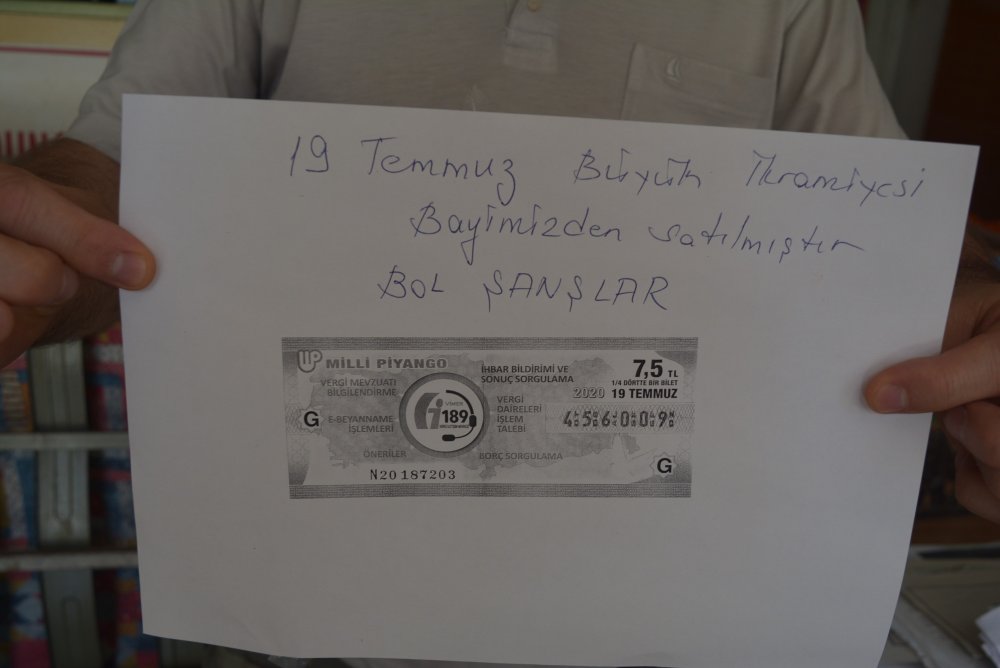 19 Temmuz Büyük İkramiyesi
Bayimizden satılmıştır
BOL ŞANŞLAR
MİLLİ PİYANGO
VERGİ MEVZUATI
BİLGİLENDİRME
G
E-BEYANNAME
İŞLEMLERİ
ÖNERİLER
N20187203
189
İHBAR BİLDİRİMİ VE
SONUÇ SORGULAMA
VERGİ
DAİRELERİ
İŞLEM
TALEBİ
BORÇ SORGULAMA
7,5 TL
1/4 DÖRTTE BİR BİLET
2020 19 TEMMUZ
456009
G